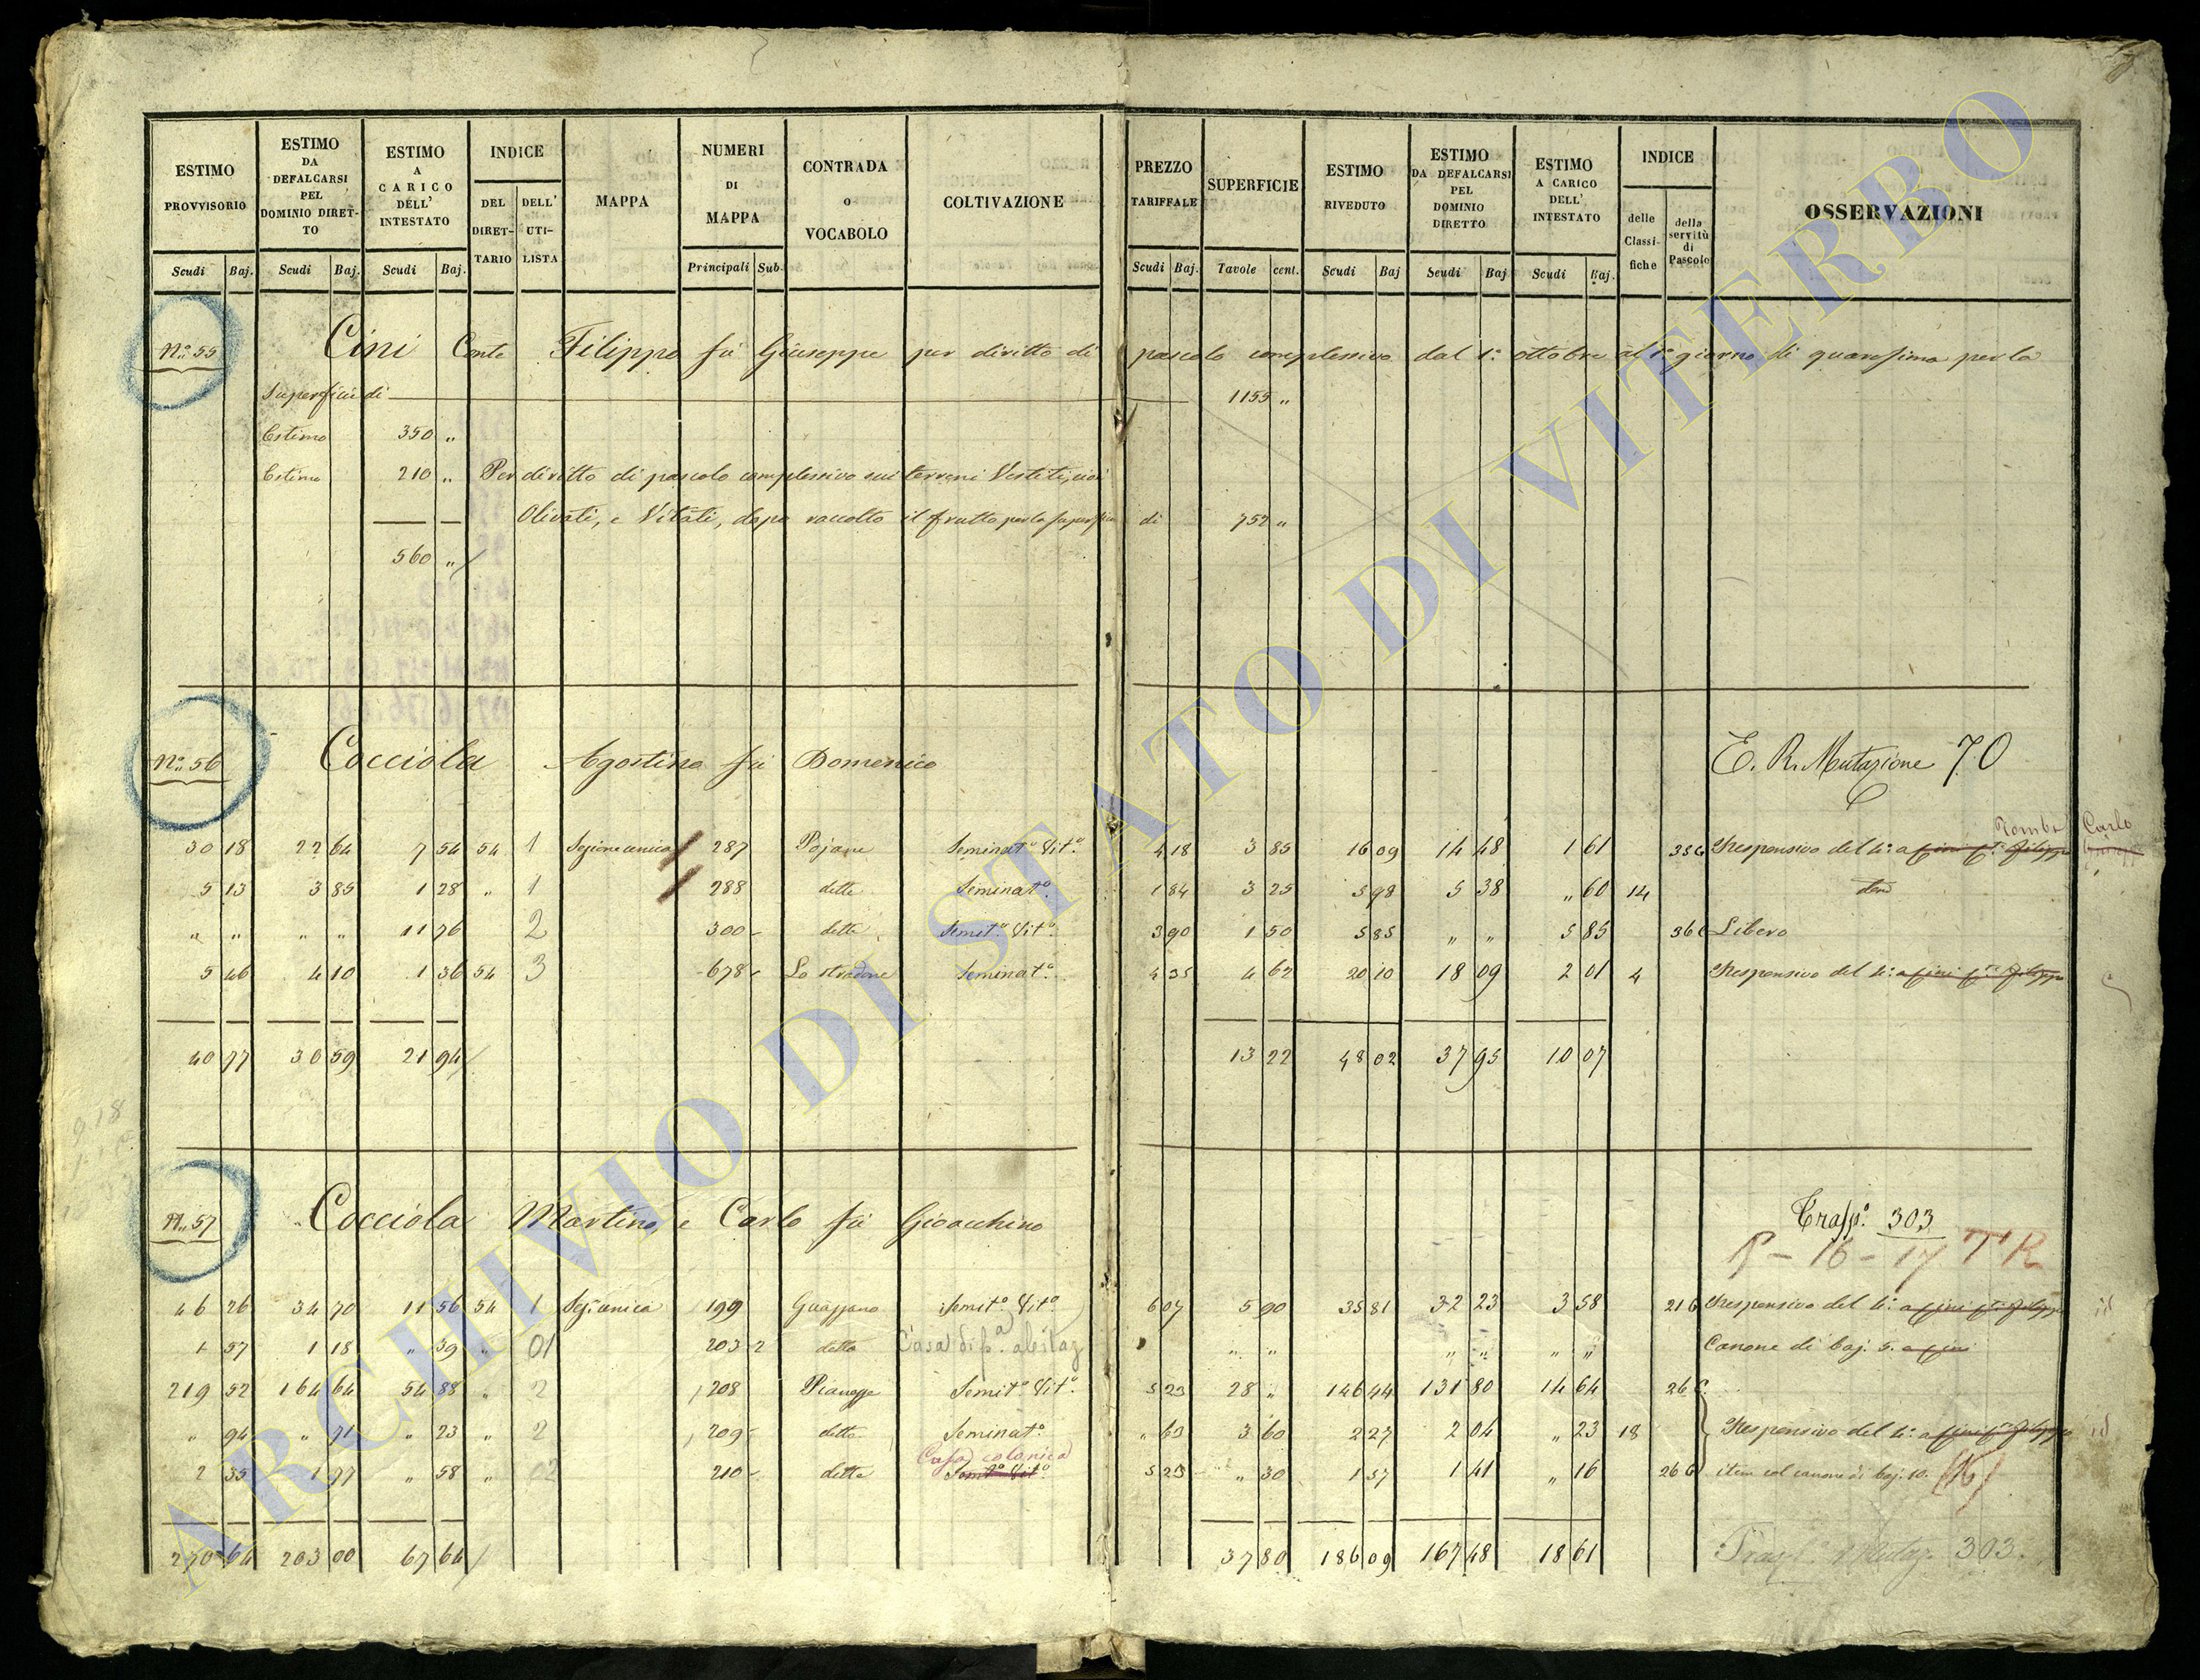 ESTIMO PROVVISORIO
ESTIMO DA DEFALCARSI PEL DOMINIO DIRETTO
ESTIMO A CARICO DELL' INTESTATO
INDICE
DEL DIRETTARIO
DELL' UTILISTA
MAPPA
NUMERI DI MAPPA
CONTRADA O VOCABOLO
COLTIVAZIONE
PREZZO TARIFFALE
SUPERFICIE
ESTIMO RIVEDUTO
ESTIMO DA DEFALCARSI PEL DOMINIO DIRETTO
ESTIMO A CARICO DELL' INTESTATO
INDICE
delle Classifiche
della servitù di Pascolo
OSSERVAZIONI
Scudi Baj. Scudi Baj. Scudi Baj. Principali Sub. Scudi Baj. Tavole cent. Scudi Baj Scudi Baj Scudi Baj.
N.° 55 Cini Conte Filippo fu Giuseppe per diritto di pascolo complessivo dal 1.° ottobre al 1° giorno di quaresima per la
Superficie di 1155 „
Estimo 350 „
Estimo 210 „ Per diritto di pascolo complessivo sui terreni Vestiti, cioè
Olivati, e Vitati, dopo raccolto il frutto per la superficie di 752 „
560 „
N.° 56 Cocciola Agostino fu Domenico E. R. Mutazione 70
Carlo
30 18 22 64 7 54 54 1 Sezione unica 287 Pojane Seminat.° Vit.° 4 18 3 85 16 09 14 48 1 61 Responsivo del 4.° a
5 13 3 85 1 28 „ 1 288 dette Seminat.° 1 84 3 25 5 98 5 38 „ 60 14
„ „ „ „ 11 76 2 300 dette Semit.° Vit.° 3 90 1 50 5 85 „ „ 5 85 36 Libero
5 46 4 10 1 36 54 3 678 Lo stradone Seminat.° 4 35 4 62 20 10 18 09 2 01 4 Responsivo del 4.°
40 77 30 59 21 94 13 22 48 02 37 95 10 07
N.° 57 Cocciola Martino, e Carlo fu Gioacchino Trasp.° 303
16 - 17 T R
46 26 34 70 11 56 54 1 Sez: unica 199 Semit.° Vit.° 6 07 5 90 35 81 32 23 3 58 21 Responsivo del 4.°
1 57 1 18 „ 39 „ 01 203 2 dette Casa di p.a abitaz „ „ „ „ „ „ Canone di baj. 5.
219 52 164 64 54 88 „ 2 208 Pianezze Semit.° Vit.° 5 23 28 „ 146 44 131 80 14 64 26
„ 94 „ 71 „ 23 „ 2 209 dette Seminat.° „ 63 3 60 2 27 2 04 „ 23 18 Responsivo del 4.°
Casa colonica
2 35 1 77 „ 58 „ 02 210 dette Semit.° Vit.° 5 23 „ 30 1 57 1 41 „ 16 26 item col canone di baj. 10.
270 64 203 00 67 64 37 80 186 09 167 48 18 61 303.
ARCHIVIO DI STATO DI VITERBO